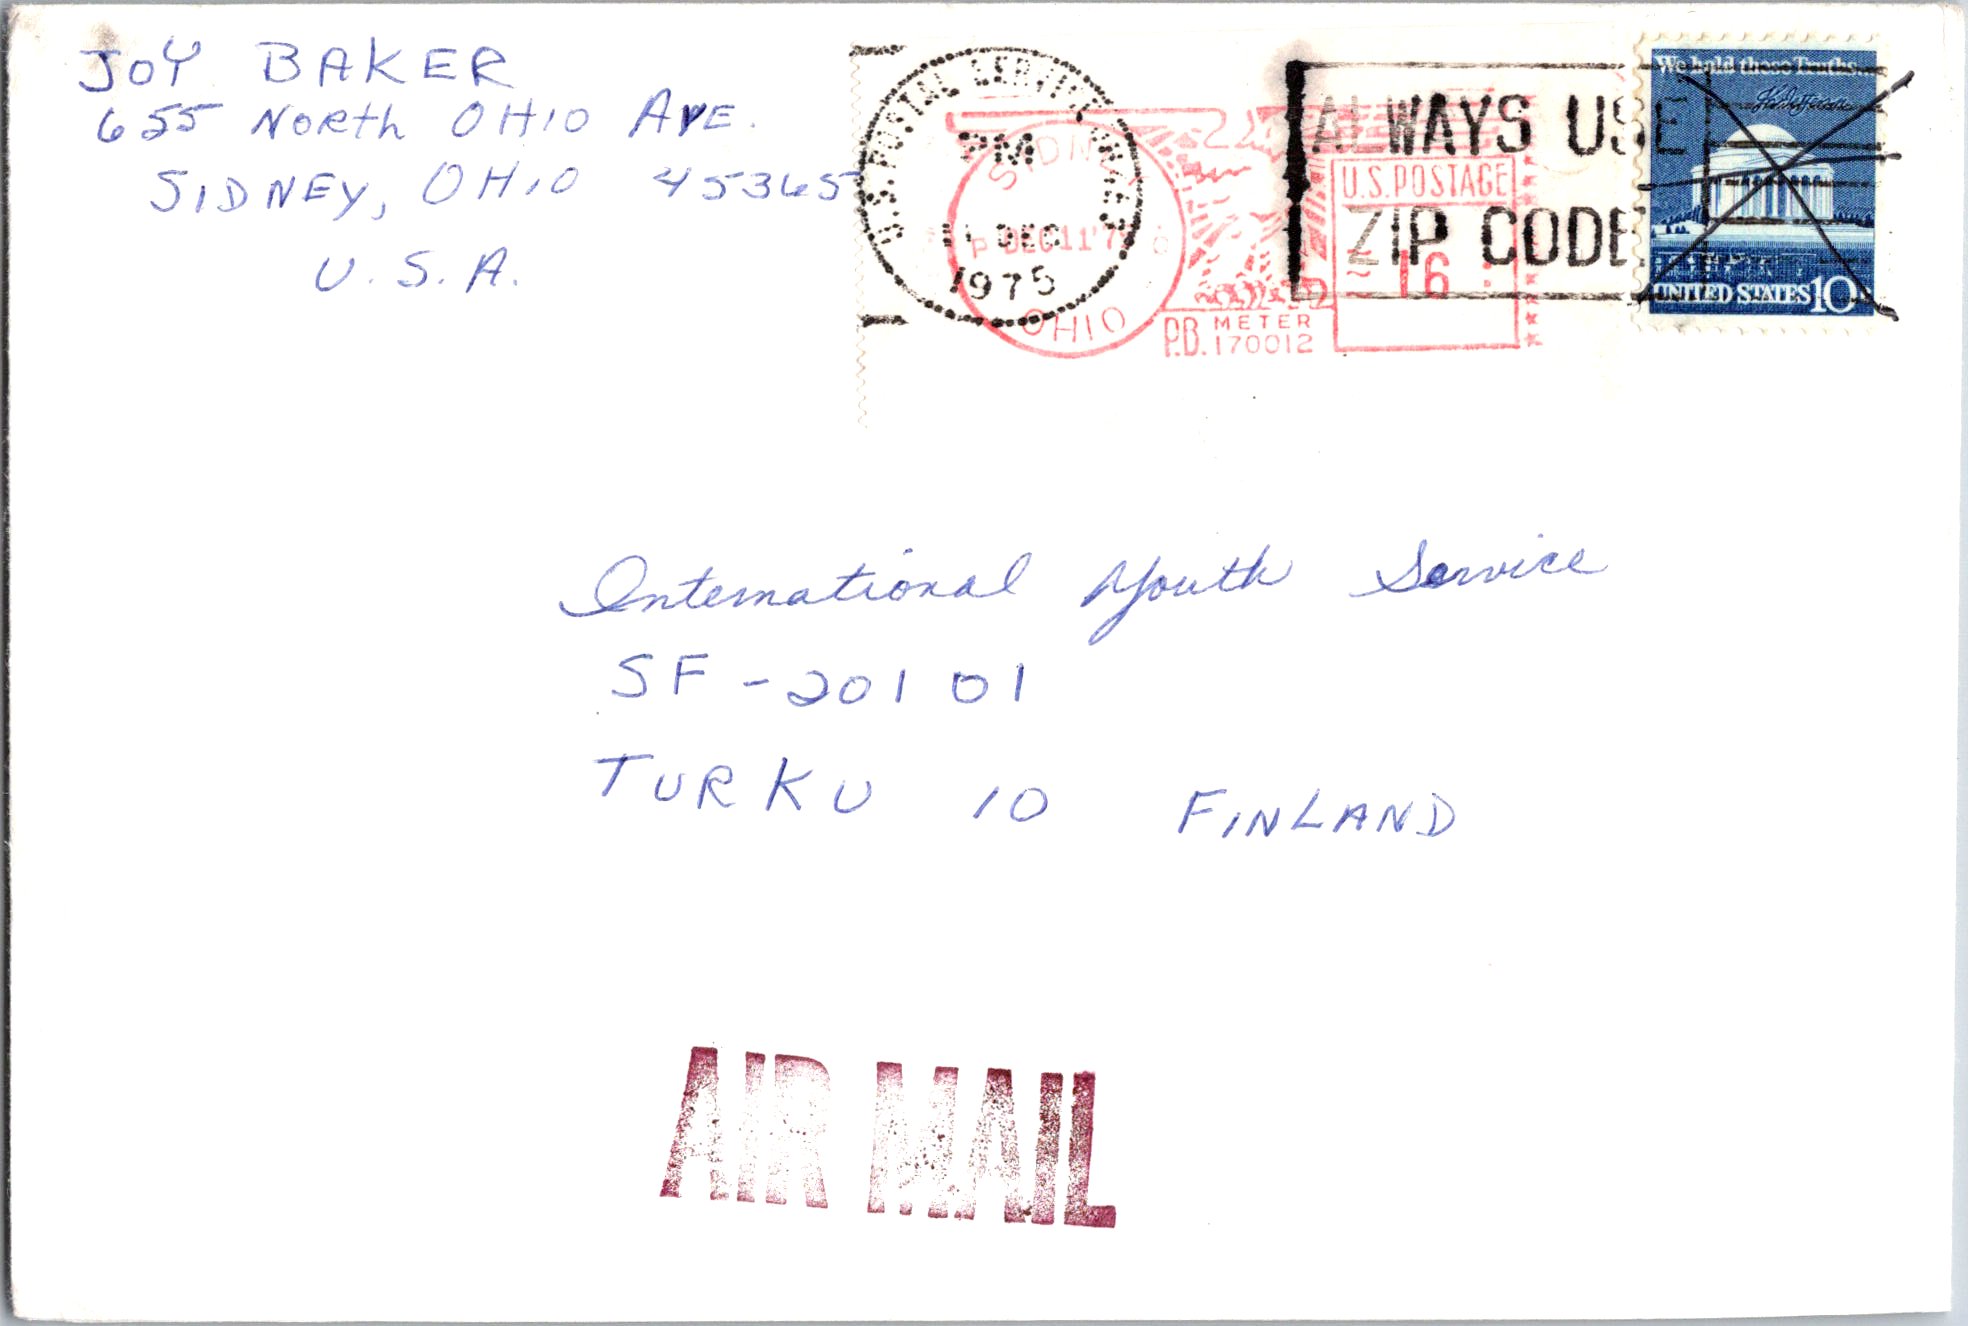 JOY BAKER
655 NORth OHIO AVE.
SIDNEY, OHIO 45365
U.S.A.
U.S. POSTAL SERVICE
PM
11 DEC
1975
SIDNEY
P DEC 11 '75
OHIO
P.B. METER
170012
U.S. POSTAGE
16
ALWAYS USE
ZIP CODE
We hold these Truths...
UNITED STATES 10
International Youth Service
SF-201 01
TURKU 10 FINLAND
AIR MAIL